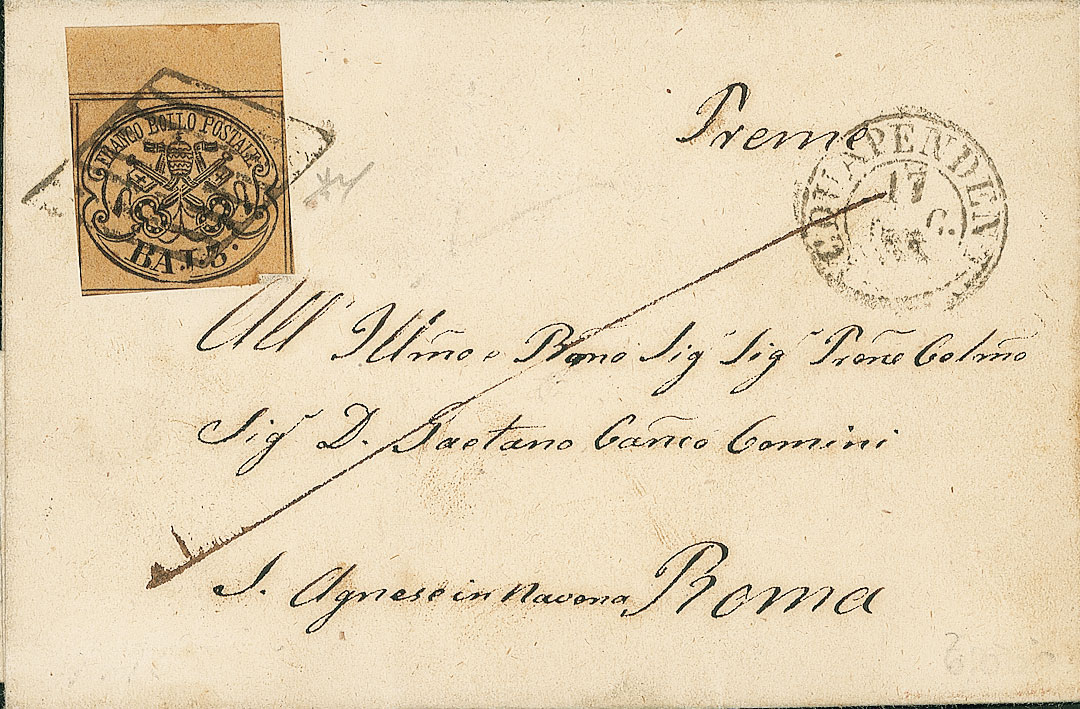 FRANCO BOLLO POSTALE
BAJ. 3.
Preme
ACQUAPENDENTE
17
All' Illmo e Rmo Sig.r Sig.r Prone Colmo
Sig.r D. Gaetano Canco Comini
S. Agnese in Navona, Roma